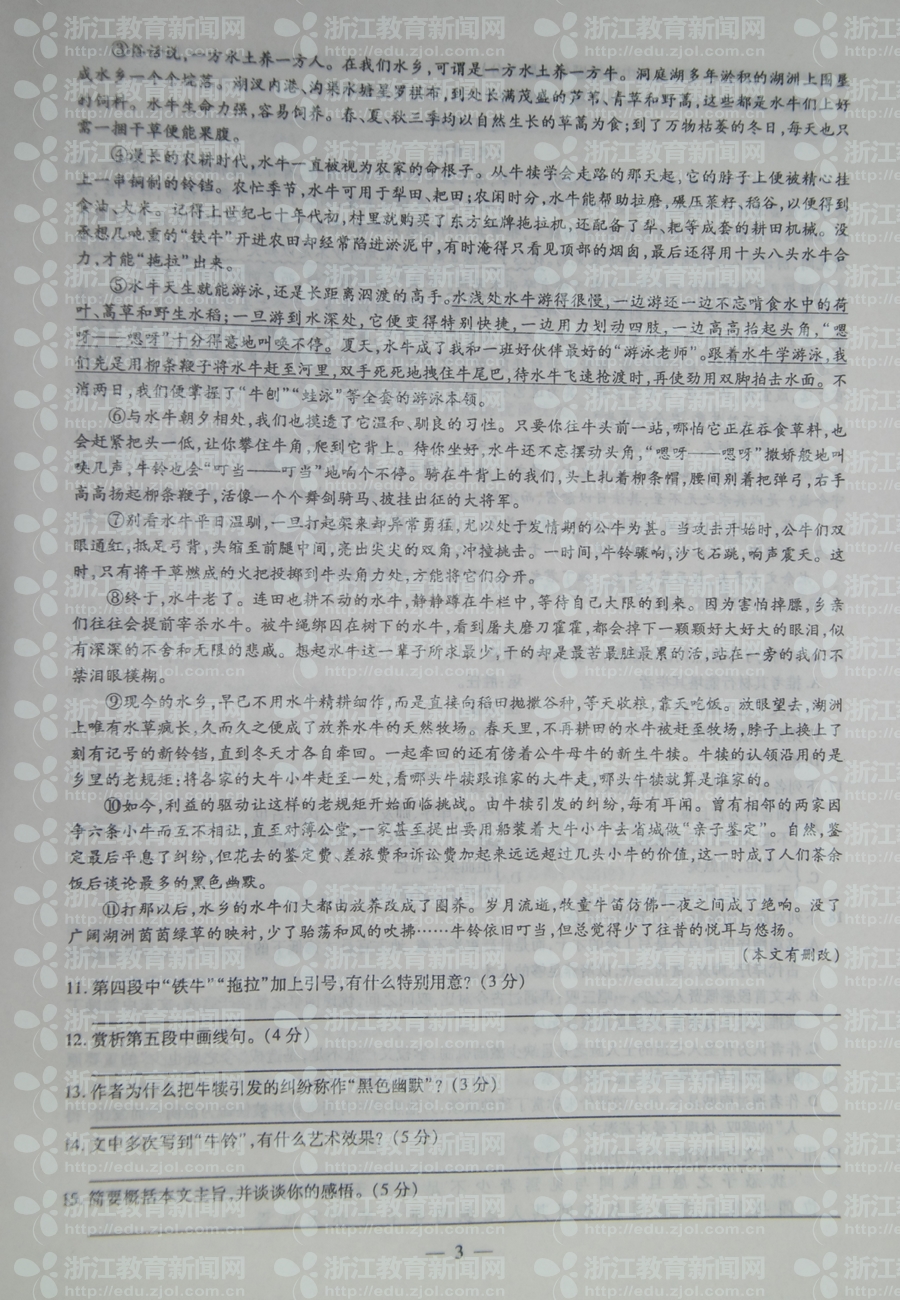 ③俗话说,一方水土养一方人。在我们水乡,可谓是一方水土养一方牛。洞庭湖多年淤积的湖洲上围垦
成水乡一个个垸落。湖汊内港、沟渠水塘星罗棋布,到处长满茂盛的芦苇、青草和野蒿,这些都是水牛们上好
的饲料。水牛生命力强,容易饲养。春、夏、秋三季均以自然生长的草蒿为食;到了万物枯萎的冬日,每天也只
需一捆干草便能果腹。
④漫长的农耕时代,水牛一直被视为农家的命根子。从牛犊学会走路的那天起,它的脖子上便被精心挂
上一串铜制的铃铛。农忙季节,水牛可用于犁田、耙田;农闲时分,水牛能帮助拉磨,碾压菜籽、稻谷,以便得到
食油、大米。记得上世纪七十年代初,村里就购买了东方红牌拖拉机,还配备了犁、耙等成套的耕田机械。没
承想几吨重的“铁牛”开进农田却经常陷进淤泥中,有时淹得只看见顶部的烟囱,最后还得用十头八头水牛合
力,才能“拖拉”出来。
⑤水牛天生就能游泳,还是长距离泅渡的高手。水浅处水牛游得很慢,一边游还一边不忘啃食水中的荷
叶、蒿草和野生水稻;一旦游到水深处,它便变得特别快捷,一边用力划动四肢,一边高高抬起头角,“嗯
呀——嗯呀”十分得意地叫唤不停。夏天,水牛成了我和一班好伙伴最好的“游泳老师”。跟着水牛学游泳,我
们先是用柳条鞭子将水牛赶至河里,双手死死地拽住牛尾巴,待水牛飞速抢渡时,再使劲用双脚拍击水面。不
消两日,我们便掌握了“牛刨”“蛙泳”等全套的游泳本领。
⑥与水牛朝夕相处,我们也摸透了它温和、驯良的习性。只要你往牛头前一站,哪怕它正在吞食草料,也
会赶紧把头一低,让你攀住牛角,爬到它背上。待你坐好,水牛还不忘摆动头角,“嗯呀——嗯呀”撒娇般地叫
唤几声,牛铃也会“叮当——叮当”地响个不停。骑在牛背上的我们,头上扎着柳条帽,腰间别着把弹弓,右手
高高扬起柳条鞭子,活像一个个舞剑骑马、披挂出征的大将军。
⑦别看水牛平日温驯,一旦打起架来却异常勇猛,尤以处于发情期的公牛为甚。当攻击开始时,公牛们双
眼通红,抵足弓背,头缩至前腿中间,亮出尖尖的双角,冲撞挑击。一时间,牛铃骤响,沙飞石跳,响声震天。这
时,只有将干草燃成的火把投掷到牛头角力处,方能将它们分开。
⑧终于,水牛老了。连田也耕不动的水牛,静静蹲在牛栏中,等待自己大限的到来。因为害怕掉膘,乡亲
们往往会提前宰杀水牛。被牛绳绑囚在树下的水牛,看到屠夫磨刀霍霍,都会掉下一颗颗好大好大的眼泪,似
有深深的不舍和无限的悲戚。想起水牛这一辈子所求最少,干的却是最苦最脏最累的活,站在一旁的我们不
禁泪眼模糊。
⑨现今的水乡,早已不用水牛精耕细作,而是直接向稻田抛撒谷种,等天收粮,靠天吃饭。放眼望去,湖洲
上唯有水草疯长,久而久之便成了放养水牛的天然牧场。春天里,不再耕田的水牛被赶至牧场,脖子上换上了
刻有记号的新铃铛,直到冬天才各自牵回。一起牵回的还有傍着公牛母牛的新生牛犊。牛犊的认领沿用的是
乡里的老规矩:将各家的大牛小牛赶至一处,看哪头牛犊跟谁家的大牛走,哪头牛犊就算是谁家的。
⑩如今,利益的驱动让这样的老规矩开始面临挑战。由牛犊引发的纠纷,每有耳闻。曾有相邻的两家因
争六条小牛而互不相让,直至对簿公堂,一家甚至提出要用船装着大牛小牛去省城做“亲子鉴定”。自然,鉴
定最后平息了纠纷,但花去的鉴定费、差旅费和诉讼费加起来远远超过几头小牛的价值,这一时成了人们茶余
饭后谈论最多的黑色幽默。
⑪打那以后,水乡的水牛们大都由放养改成了圈养。岁月流逝,牧童牛笛仿佛一夜之间成了绝响。没了
广阔湖洲茵茵绿草的映衬,少了骀荡和风的吹拂……牛铃依旧叮当,但总觉得少了往昔的悦耳与悠扬。
(本文有删改)
11. 第四段中“铁牛”“拖拉”加上引号,有什么特别用意?(3 分)
12. 赏析第五段中画线句。(4 分)
13. 作者为什么把牛犊引发的纠纷称作“黑色幽默”?(3 分)
14. 文中多次写到“牛铃”,有什么艺术效果?(5 分)
15. 简要概括本文主旨,并谈谈你的感悟。(5 分)
— 3 —
浙江教育新闻网
http://edu.zjol.com.cn